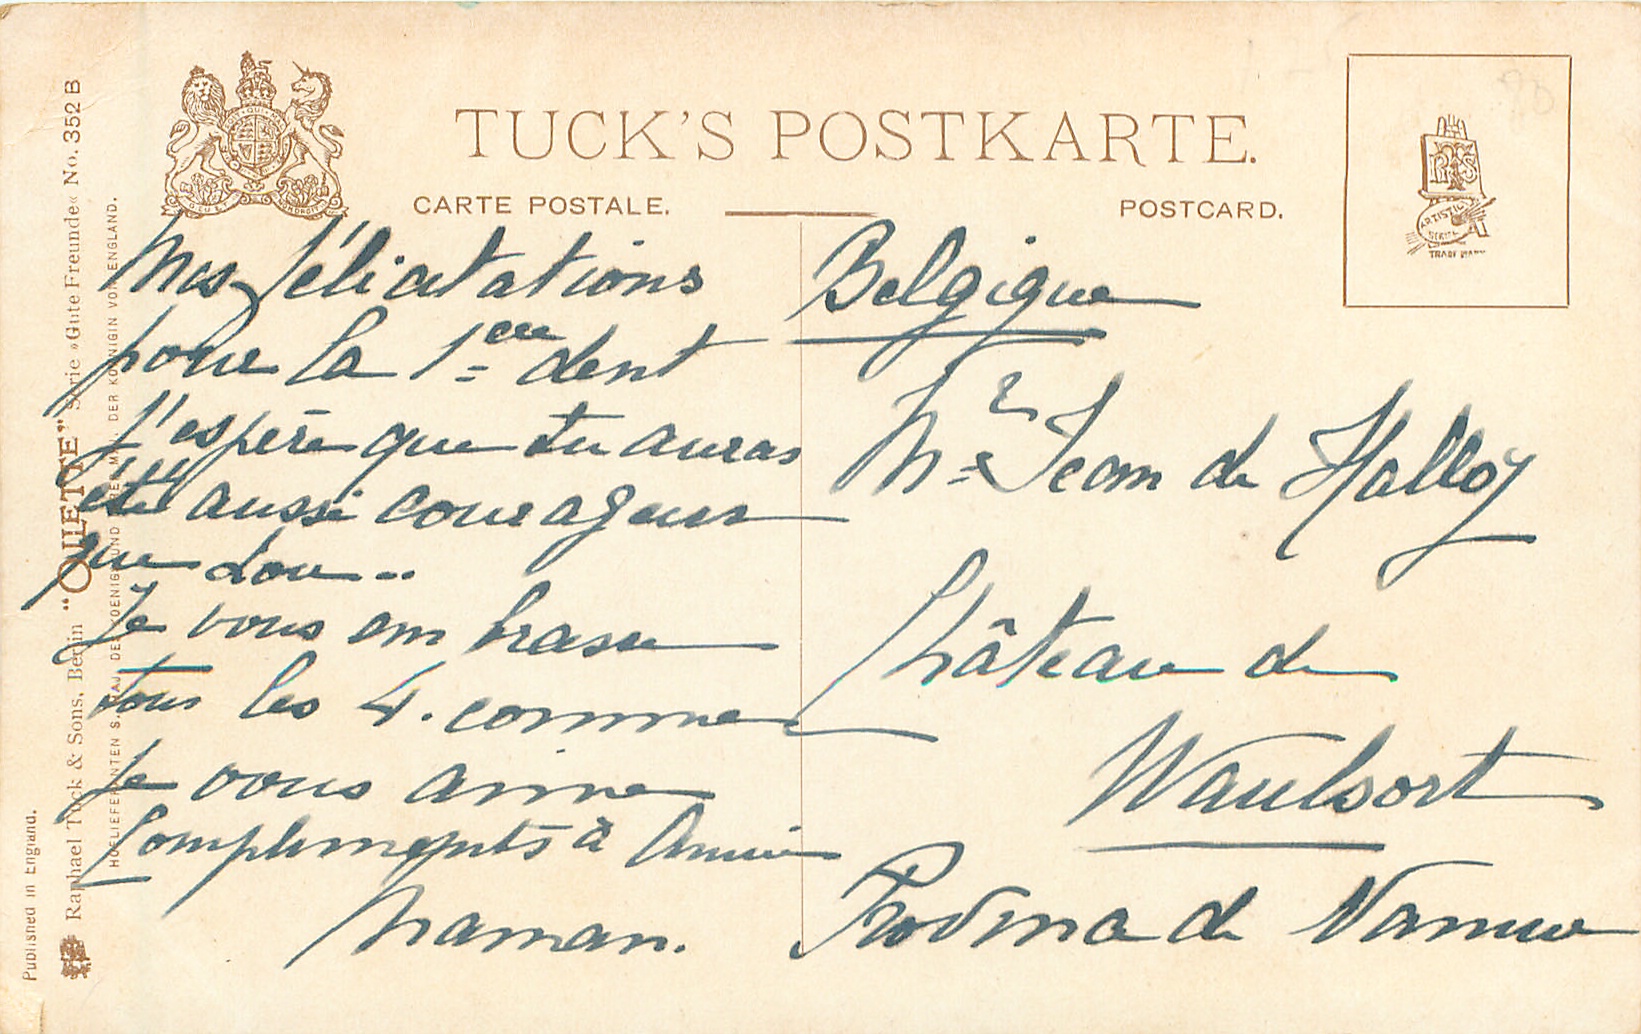 TUCK'S POSTKARTE.
CARTE POSTALE.
POSTCARD.
ARTISTIC
SERIE
TRADE MARK
Mes félicitations
pour la 1ère dent
J'espère que tu auras
été aussi courageux
que Lou..
Je vous embrasse
tous les 4. comme
je vous aime
Compliments à Annie
Maman.
Belgique
Mr Jean de Halloy
Château de
Waulsort
Province de Namur
Published in England.
Raphael Tuck & Sons, Berlin "OILETTE" Serie »Gute Freunde« No. 352 B
HOFLIEFERANTEN S. MAJ. DES KOENIGS UND IHRER MAJ. DER KÖNIGIN VON ENGLAND.